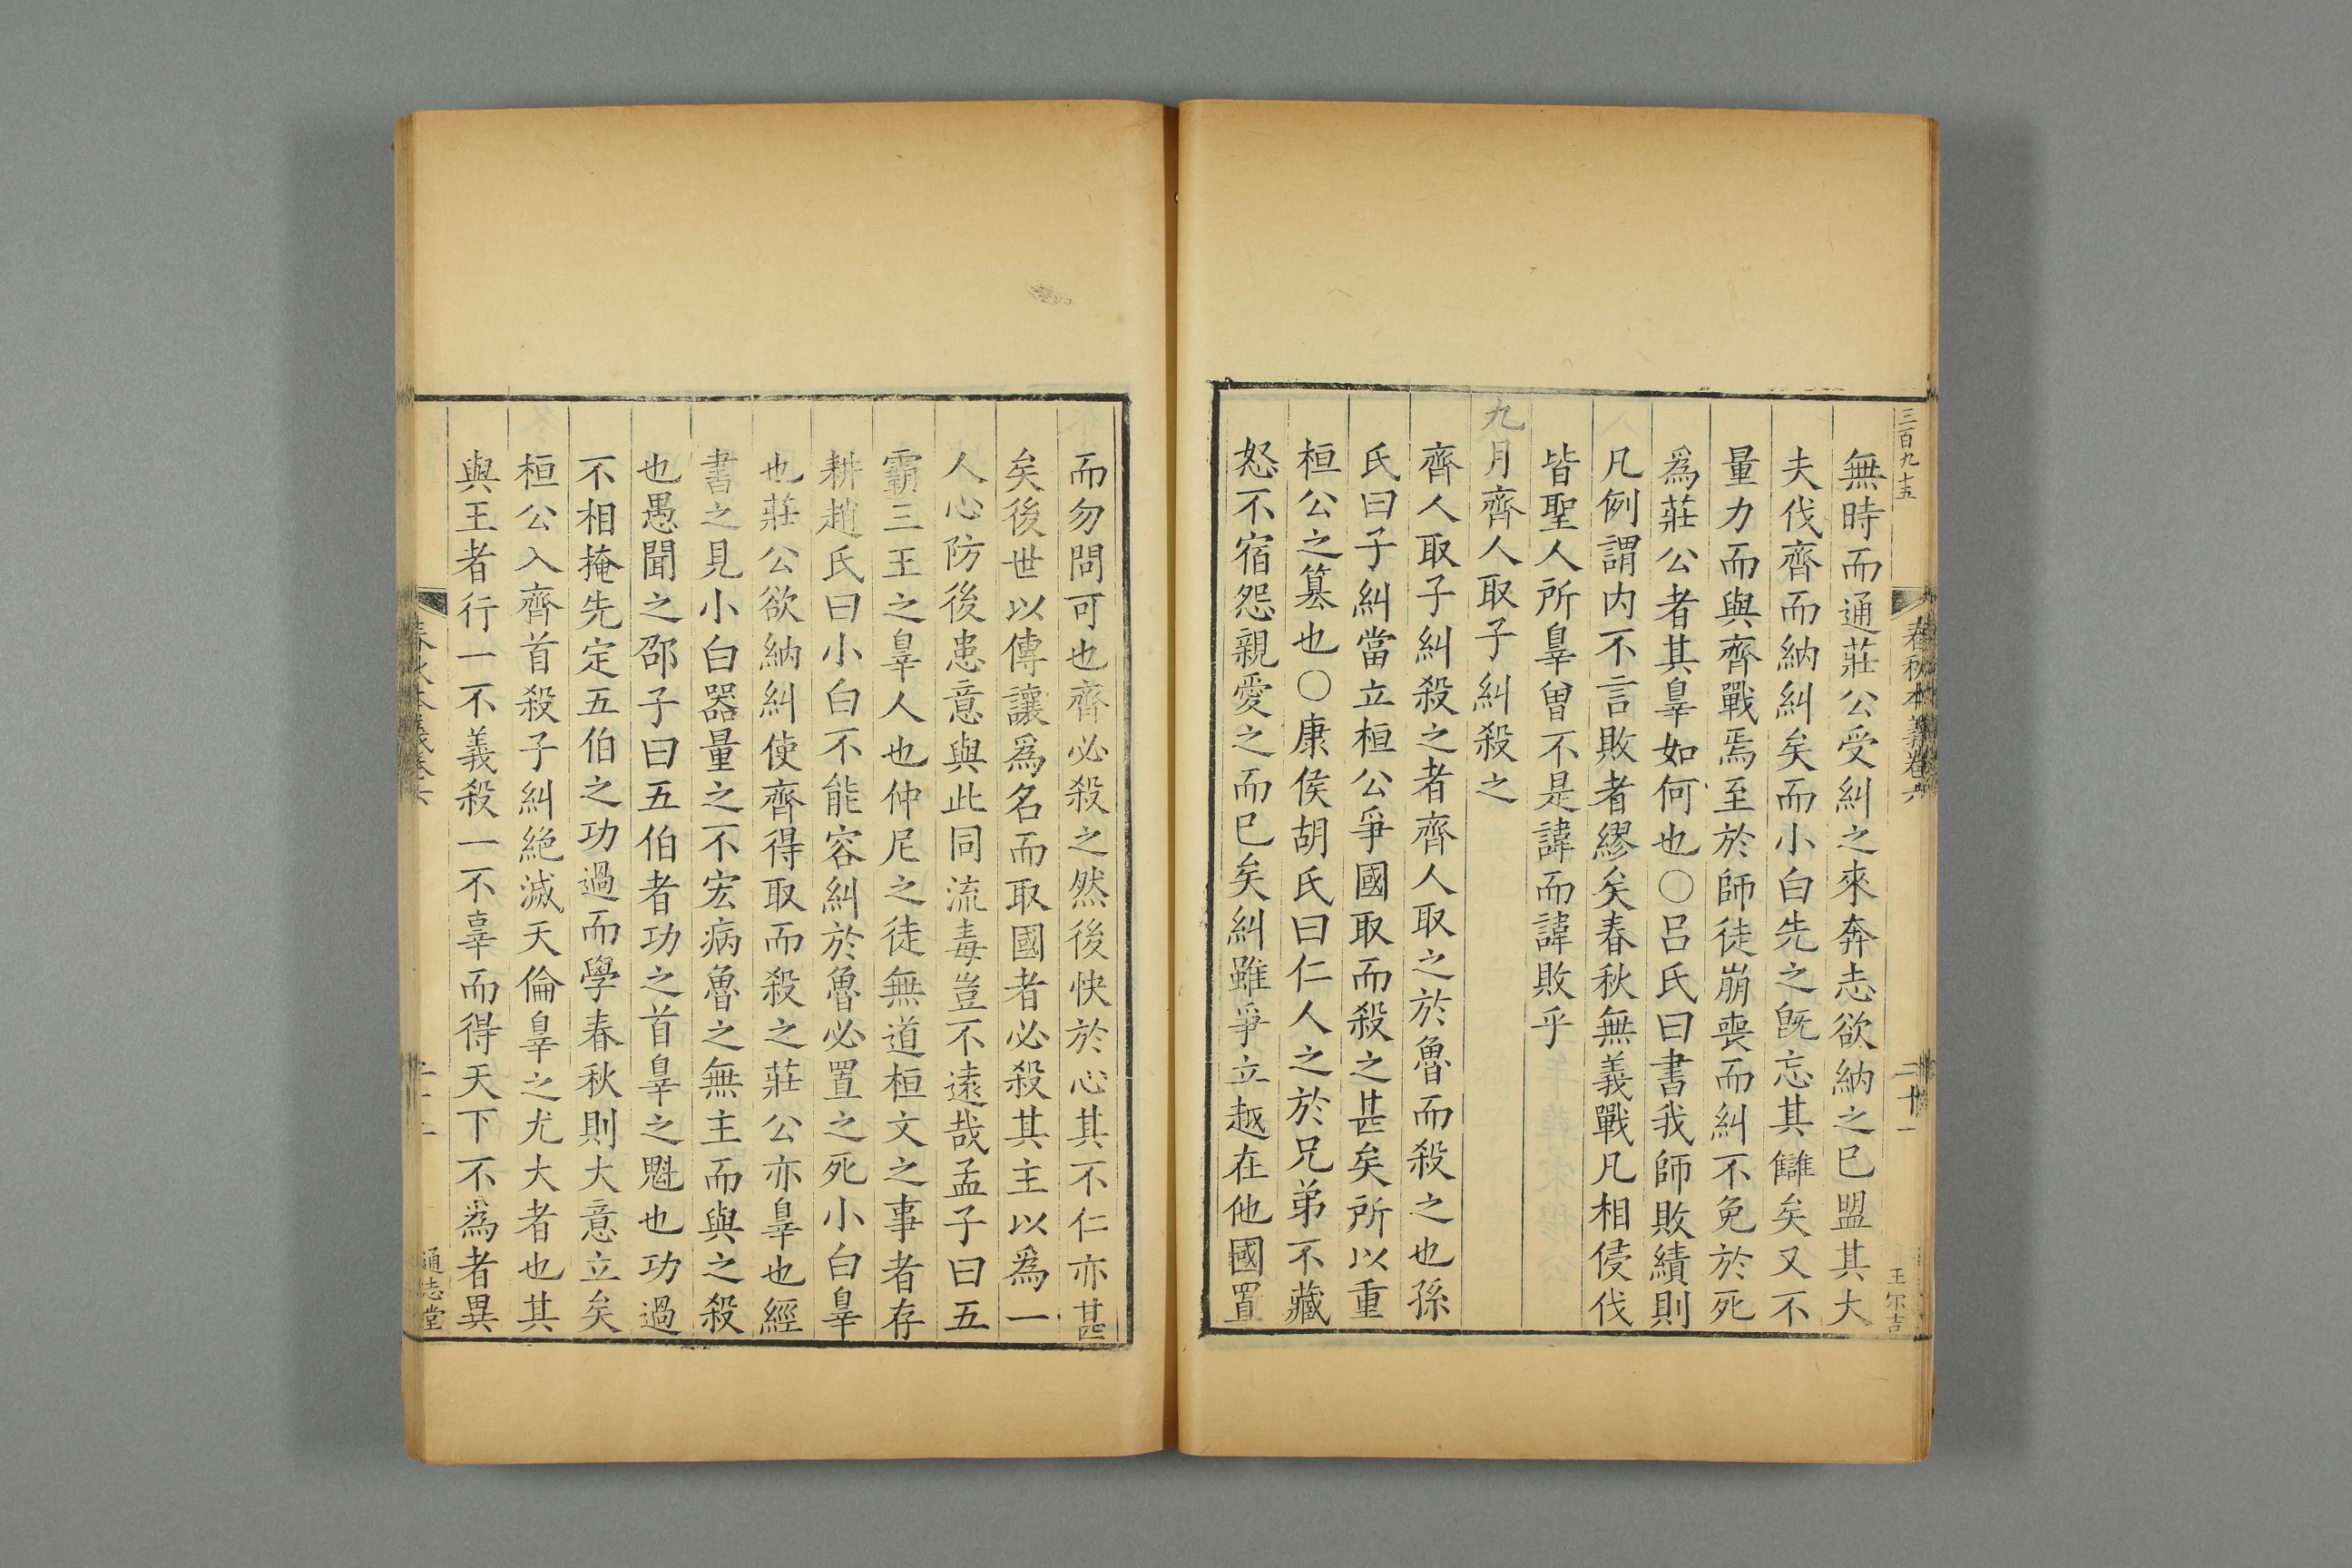 三百九十五
春秋本義卷六
二十一
王尔吉
無時而通莊公受糾之來奔志欲納之已盟其大
夫伐齊而納糾矣而小白先之旣忘其讎矣又不
量力而與齊戰焉至於師徒崩喪而糾不免於死
爲莊公者其辠如何也○呂氏曰書我師敗績則
凡例謂内不言敗者繆矣春秋無義戰凡相侵伐
皆聖人所辠曽不是諱而諱敗乎
九月齊人取子糾殺之
齊人取子糾殺之者齊人取之於魯而殺之也孫
氏曰子糾當立桓公爭國取而殺之甚矣所以重
桓公之篡也○康侯胡氏曰仁人之於兄弟不藏
怒不宿怨親愛之而已矣糾雖爭立越在他國置
而勿問可也齊必殺之然後快於心其不仁亦甚
矣後世以傳讓爲名而取國者必殺其主以爲一
人心防後患意與此同流毒豈不遠哉孟子曰五
霸三王之辠人也仲尼之徒無道桓文之事者存
耕趙氏曰小白不能容糾於魯必置之死小白辠
也莊公欲納糾使齊得取而殺之莊公亦辠也經
書之見小白器量之不宏病魯之無主而與之殺
也愚聞之邵子曰五伯者功之首辠之魁也功過
不相掩先定五伯之功過而學春秋則大意立矣
桓公入齊首殺子糾絶滅天倫辠之尤大者也其
與王者行一不義殺一不辜而得天下不爲者異
春秋本義卷六
通志堂